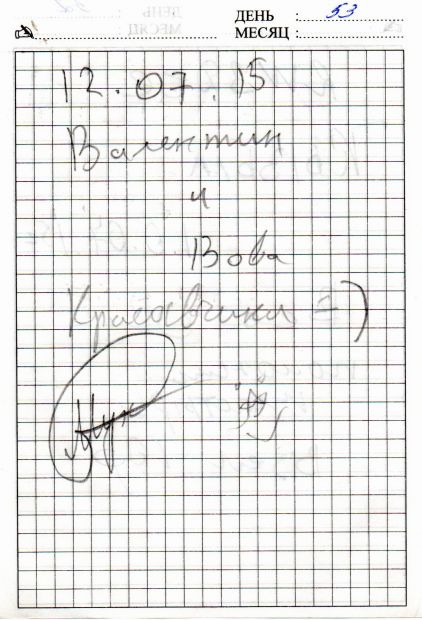 ДЕНЬ : 53
МЕСЯЦ :
12.07.15
Валентин
и
Вова
Красавчики =)